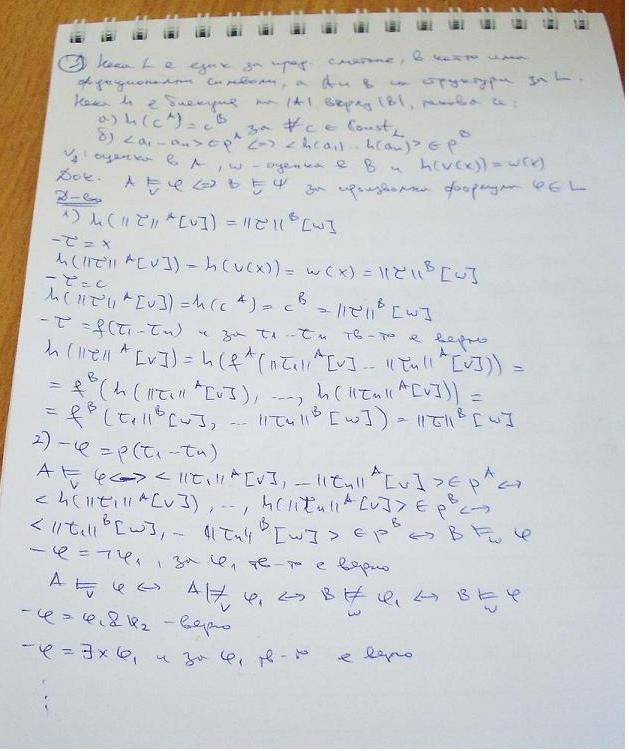 ③ Нека L е език за пред. смятане, в който има
функционални символи, а A и B са структури за L.
Нека h е биекция на |A| върху |B|, такава че:
а) h(cᴬ) = cᴮ за ∀c ∈ Const_L
б) <a₁ – aₙ> ∈ pᴬ <=> <h(a₁)... h(aₙ)> ∈ pᴮ
v: оценка в A, w – оценка в B и h(v(x)) = w(x)
Док. A ⊨ᵥ φ <=> B ⊨ᵥ φ за произволна формула φ ∈ L
Д-во
1) h(||τ||ᴬ[v]) = ||τ||ᴮ[w]
– τ = x
h(||τ||ᴬ[v]) = h(v(x)) = w(x) = ||τ||ᴮ[w]
– τ = c
h(||τ||ᴬ[v]) = h(cᴬ) = cᴮ = ||τ||ᴮ[w]
– τ = f(τ₁ – τₙ) и за τ₁ ... τₙ тв-то е вярно
h(||τ||ᴬ[v]) = h(fᴬ(||τ₁||ᴬ[v] ... ||τₙ||ᴬ[v])) =
= fᴮ(h(||τ₁||ᴬ[v]), ..., h(||τₙ||ᴬ[v])) =
= fᴮ(τ₁||ᴮ[w], ... ||τₙ||ᴮ[w]) = ||τ||ᴮ[w]
2) – φ = p(τ₁ – τₙ)
A ⊨ᵥ φ <-> <||τ₁||ᴬ[v], ... ||τₙ||ᴬ[v]> ∈ pᴬ <->
<h(||τ₁||ᴬ[v]), ..., h(||τₙ||ᴬ[v]> ∈ pᴮ <->
<||τ₁||ᴮ[w], – ||τₙ||ᴮ[w]> ∈ pᴮ <-> B ⊨_w φ
– φ = ¬φ₁, за φ₁ тв-то е вярно
A ⊨ᵥ φ <-> A ⊭ᵥ φ₁ <-> B ⊭_w φ₁ <-> B ⊨_w φ
– φ = φ₁ & φ₂ – вярно
– φ = ∃x φ₁ и за φ₁ тв-то е вярно
⋮